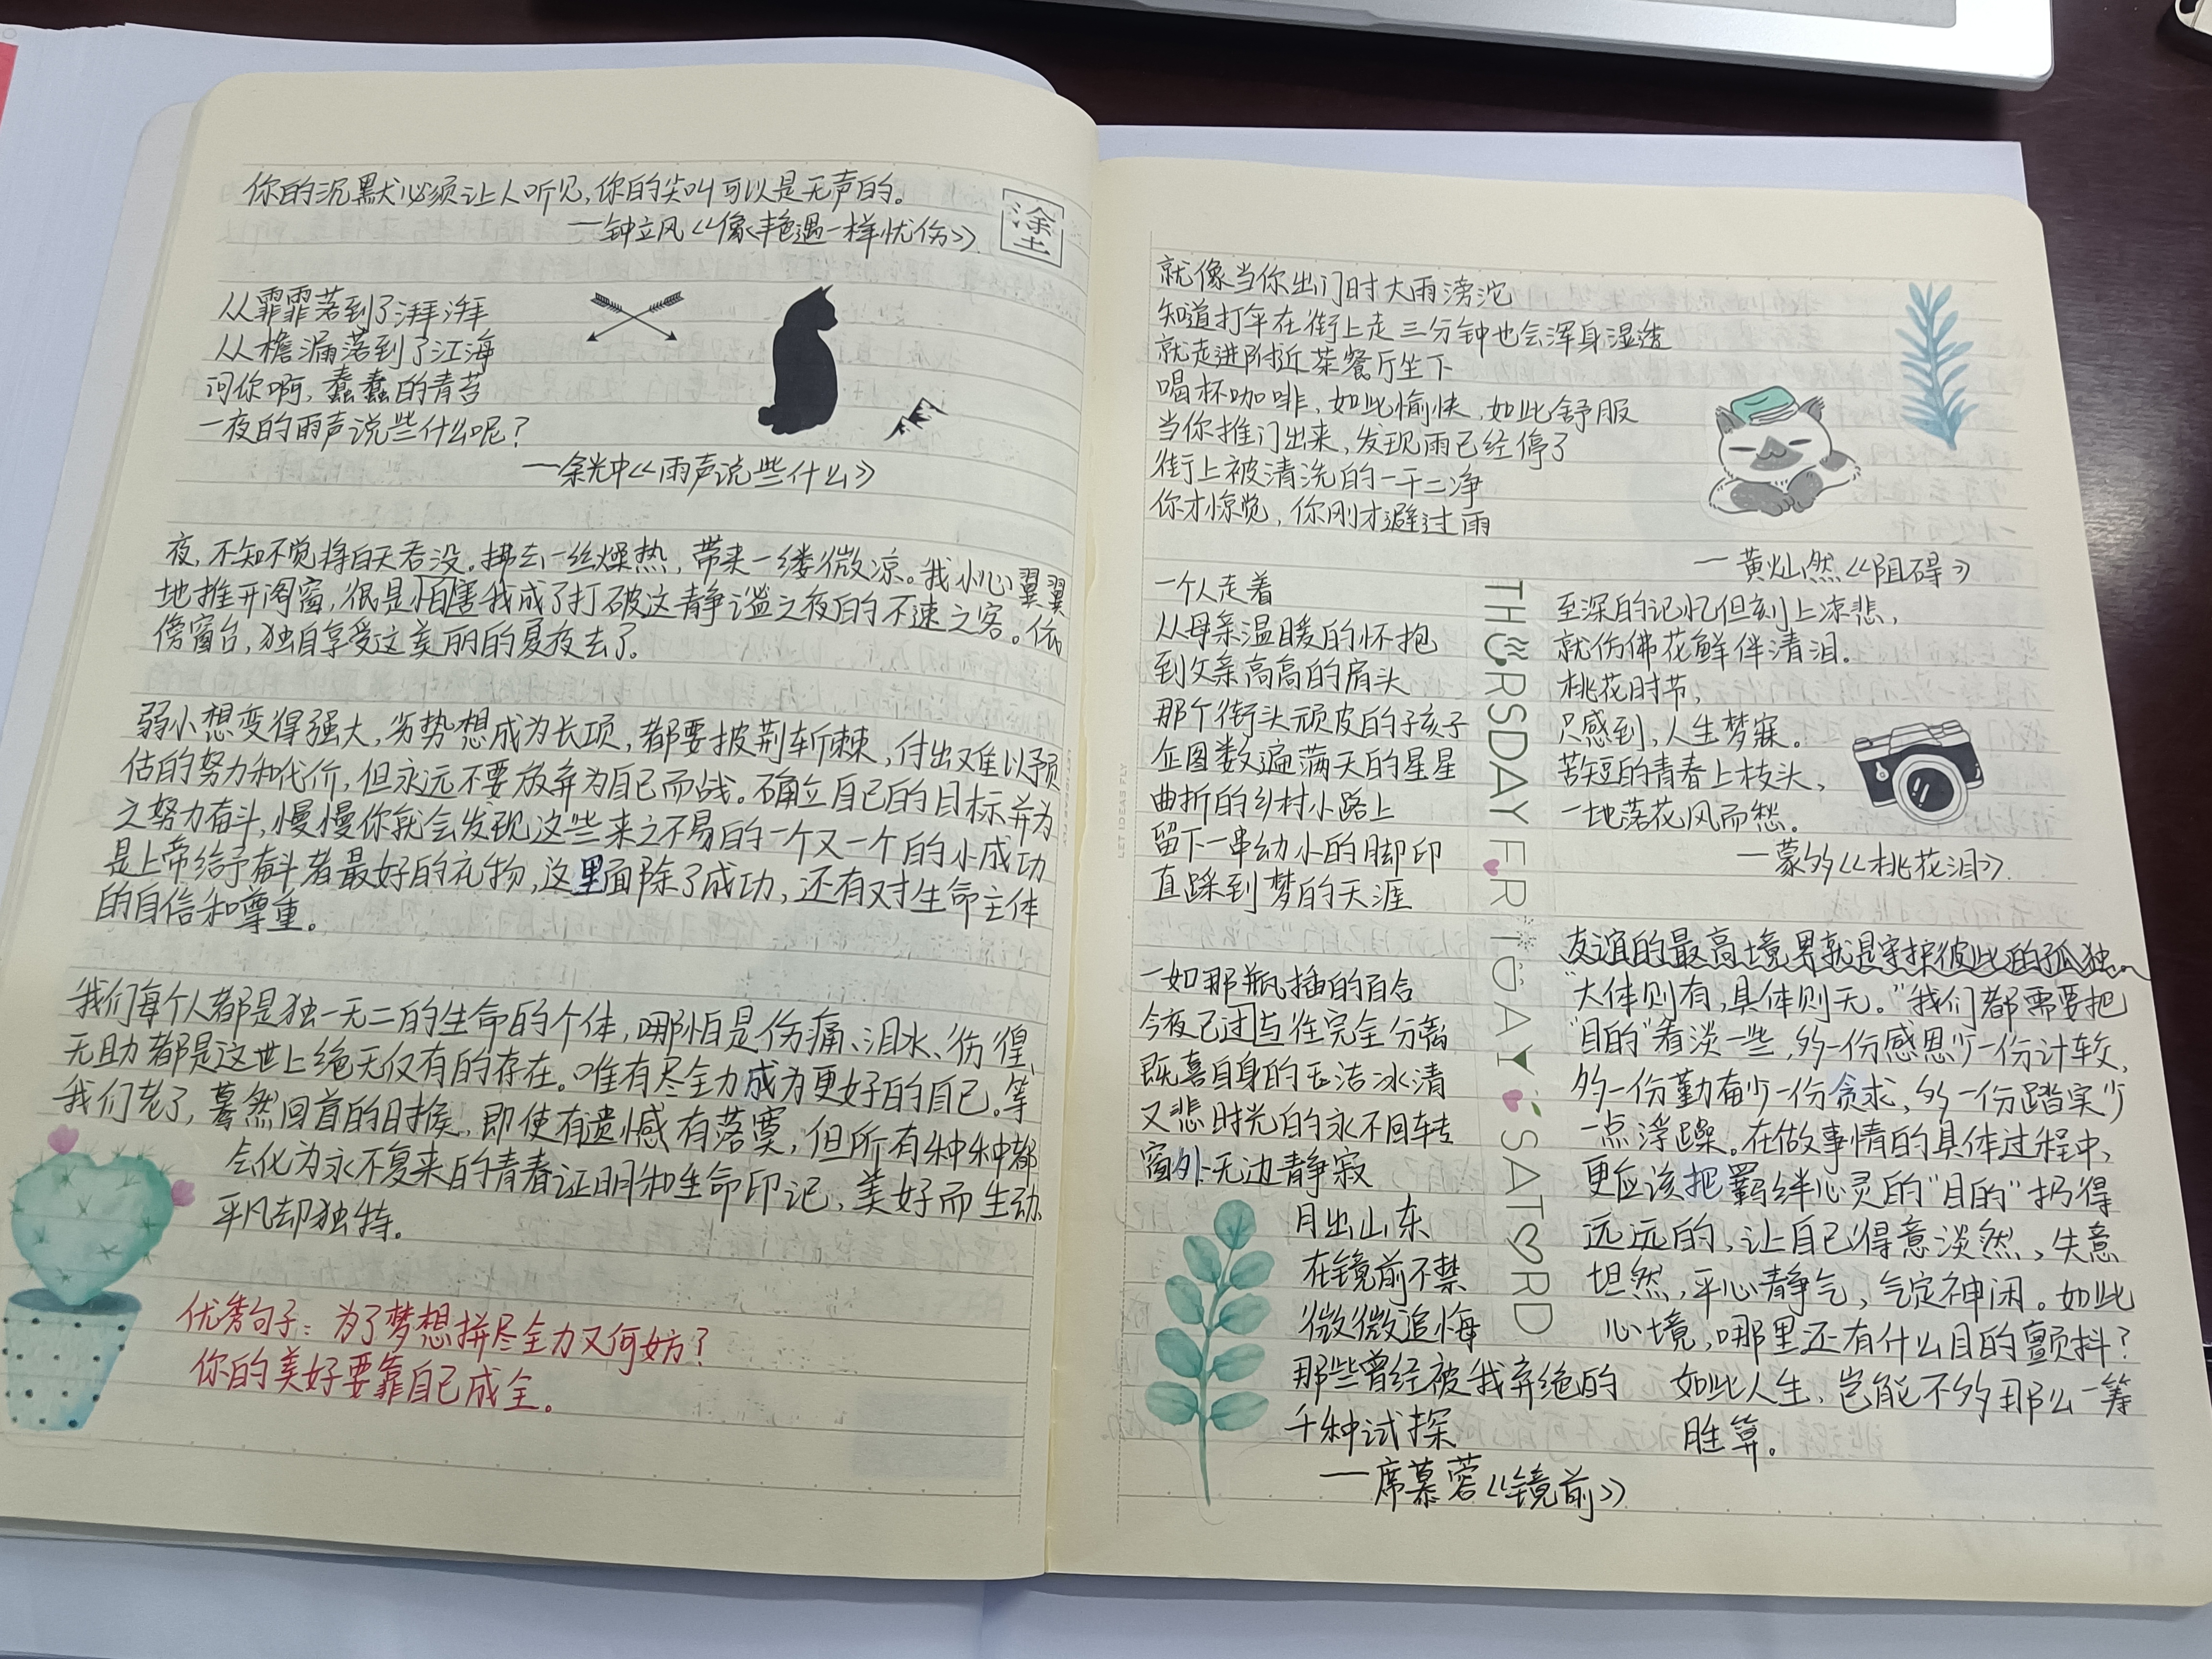 你的沉默必须让人听见,你的尖叫可以是无声的。
—钟立风《像艳遇一样忧伤》
塗
从霏霏落到了湃湃
从檐漏落到了江海
问你啊,蠢蠢的青苔
一夜的雨声说些什么呢?
—余光中《雨声说些什么》
夜,不知不觉将白天吞没。拂去一丝燥热,带来一缕微凉。我小心翼翼
地推开阁窗,很是怕害我成了打破这静谧之夜的不速之客。依
傍窗台,独自享受这美丽的夏夜去了。
弱小想变得强大,劣势想成为长项,都要披荆斩棘,付出难以预
估的努力和代价,但永远不要放弃为自己而战。确立自己的目标并为
之努力奋斗,慢慢你就会发现这些来之不易的一个又一个的小成功
是上帝给予奋斗者最好的礼物,这里面除了成功,还有对生命主体
的自信和尊重。
我们每个人都是独一无二的生命的个体,哪怕是伤痛、泪水、彷徨、
无助都是这世上绝无仅有的存在。唯有尽全力成为更好的自己。等
我们老了,蓦然回首的时候,即使有遗憾有落寞,但所有种种都
会化为永不复来的青春证明和生命印记,美好而生动,
平凡却独特。
优秀句子:为了梦想拼尽全力又何妨?
你的美好要靠自己成全。
LET IDEAS FLY
就像当你出门时大雨滂沱
知道打伞在街上走三分钟也会浑身湿透
就走进附近茶餐厅坐下
喝杯咖啡,如此愉快,如此舒服
当你推门出来,发现雨已经停了
街上被清洗的一干二净
你才惊觉,你刚才避过雨
—黄灿然《阻碍》
一个人走着
从母亲温暖的怀抱
到父亲高高的肩头
那个街头顽皮的孩子
企图数遍满天的星星
曲折的乡村小路上
留下一串幼小的脚印
直踩到梦的天涯
一如那瓶插的百合
今夜已过与往完全分离
既喜自身的玉洁冰清
又悲时光的永不回转
窗外无边静寂
月出山东
在镜前不禁
微微追悔
那些曾经被我弃绝的
千种试探
—席慕蓉《镜前》
THURSDAY FRIDAY SATORD
至深的记忆但刻上凉悲,
就仿佛花鲜伴清泪。
桃花时节,
只感到,人生梦寐。
苦短的青春上枝头,
一地落花风而愁。
—蒙夠《桃花泪》
友谊的最高境界就是守护彼此的孤独。
“大体则有,具体则无。”我们都需要把
“目的”看淡一些,多一份感恩少一份计较,
多一份勤奋少一份贪求,多一份踏实少
一点浮躁。在做事情的具体过程中,
更应该把羁绊心灵的“目的”扔得
远远的,让自己得意淡然,失意
坦然,平心静气,气定神闲。如此
心境,哪里还有什么目的颤抖?
如此人生,岂能不多那么一筹
胜算。